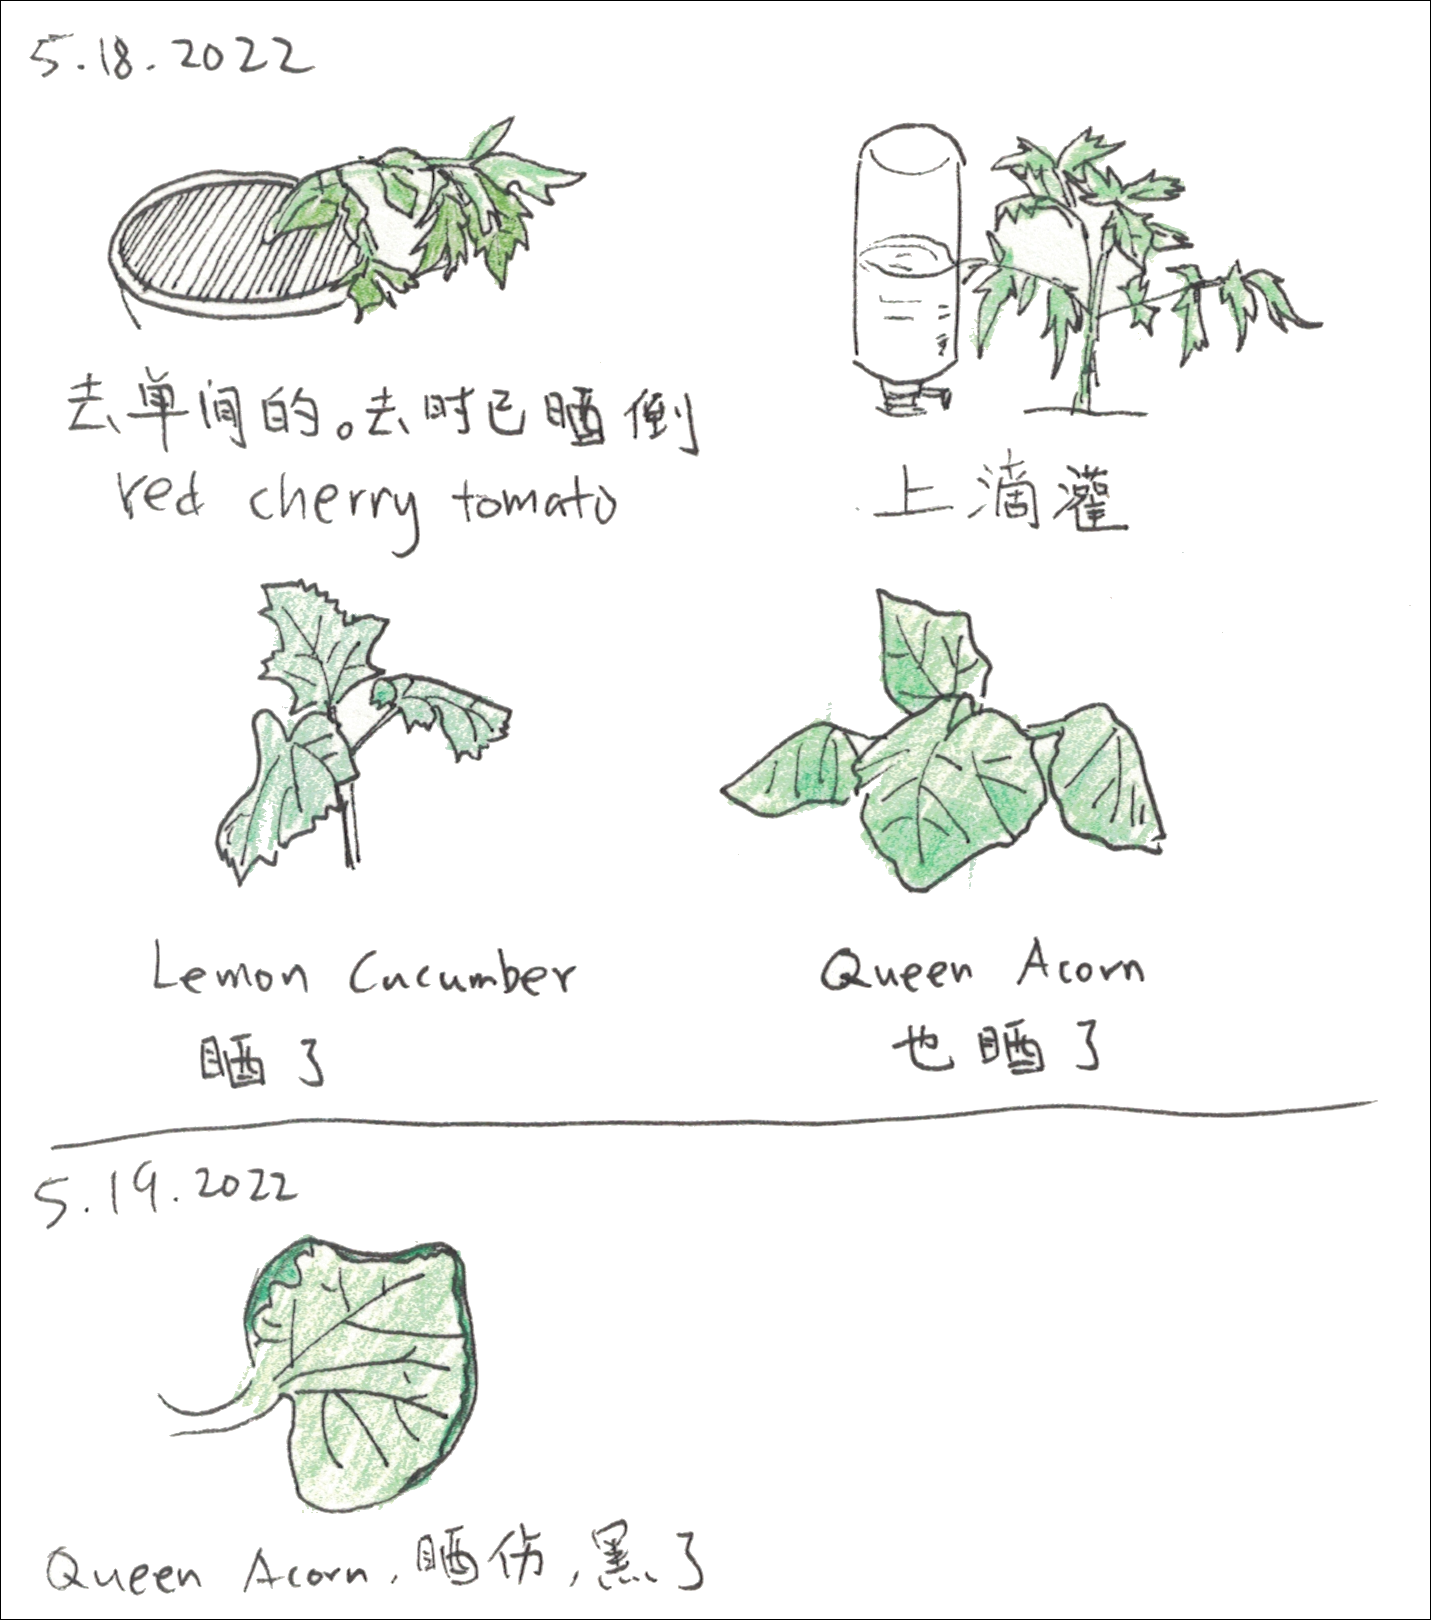 5.18.2022
去单间的。去时已晒倒
red cherry tomato
上滴灌
Lemon Cucumber
晒了
Queen Acorn
也晒了
5.19.2022
Queen Acorn, 晒伤,黑了